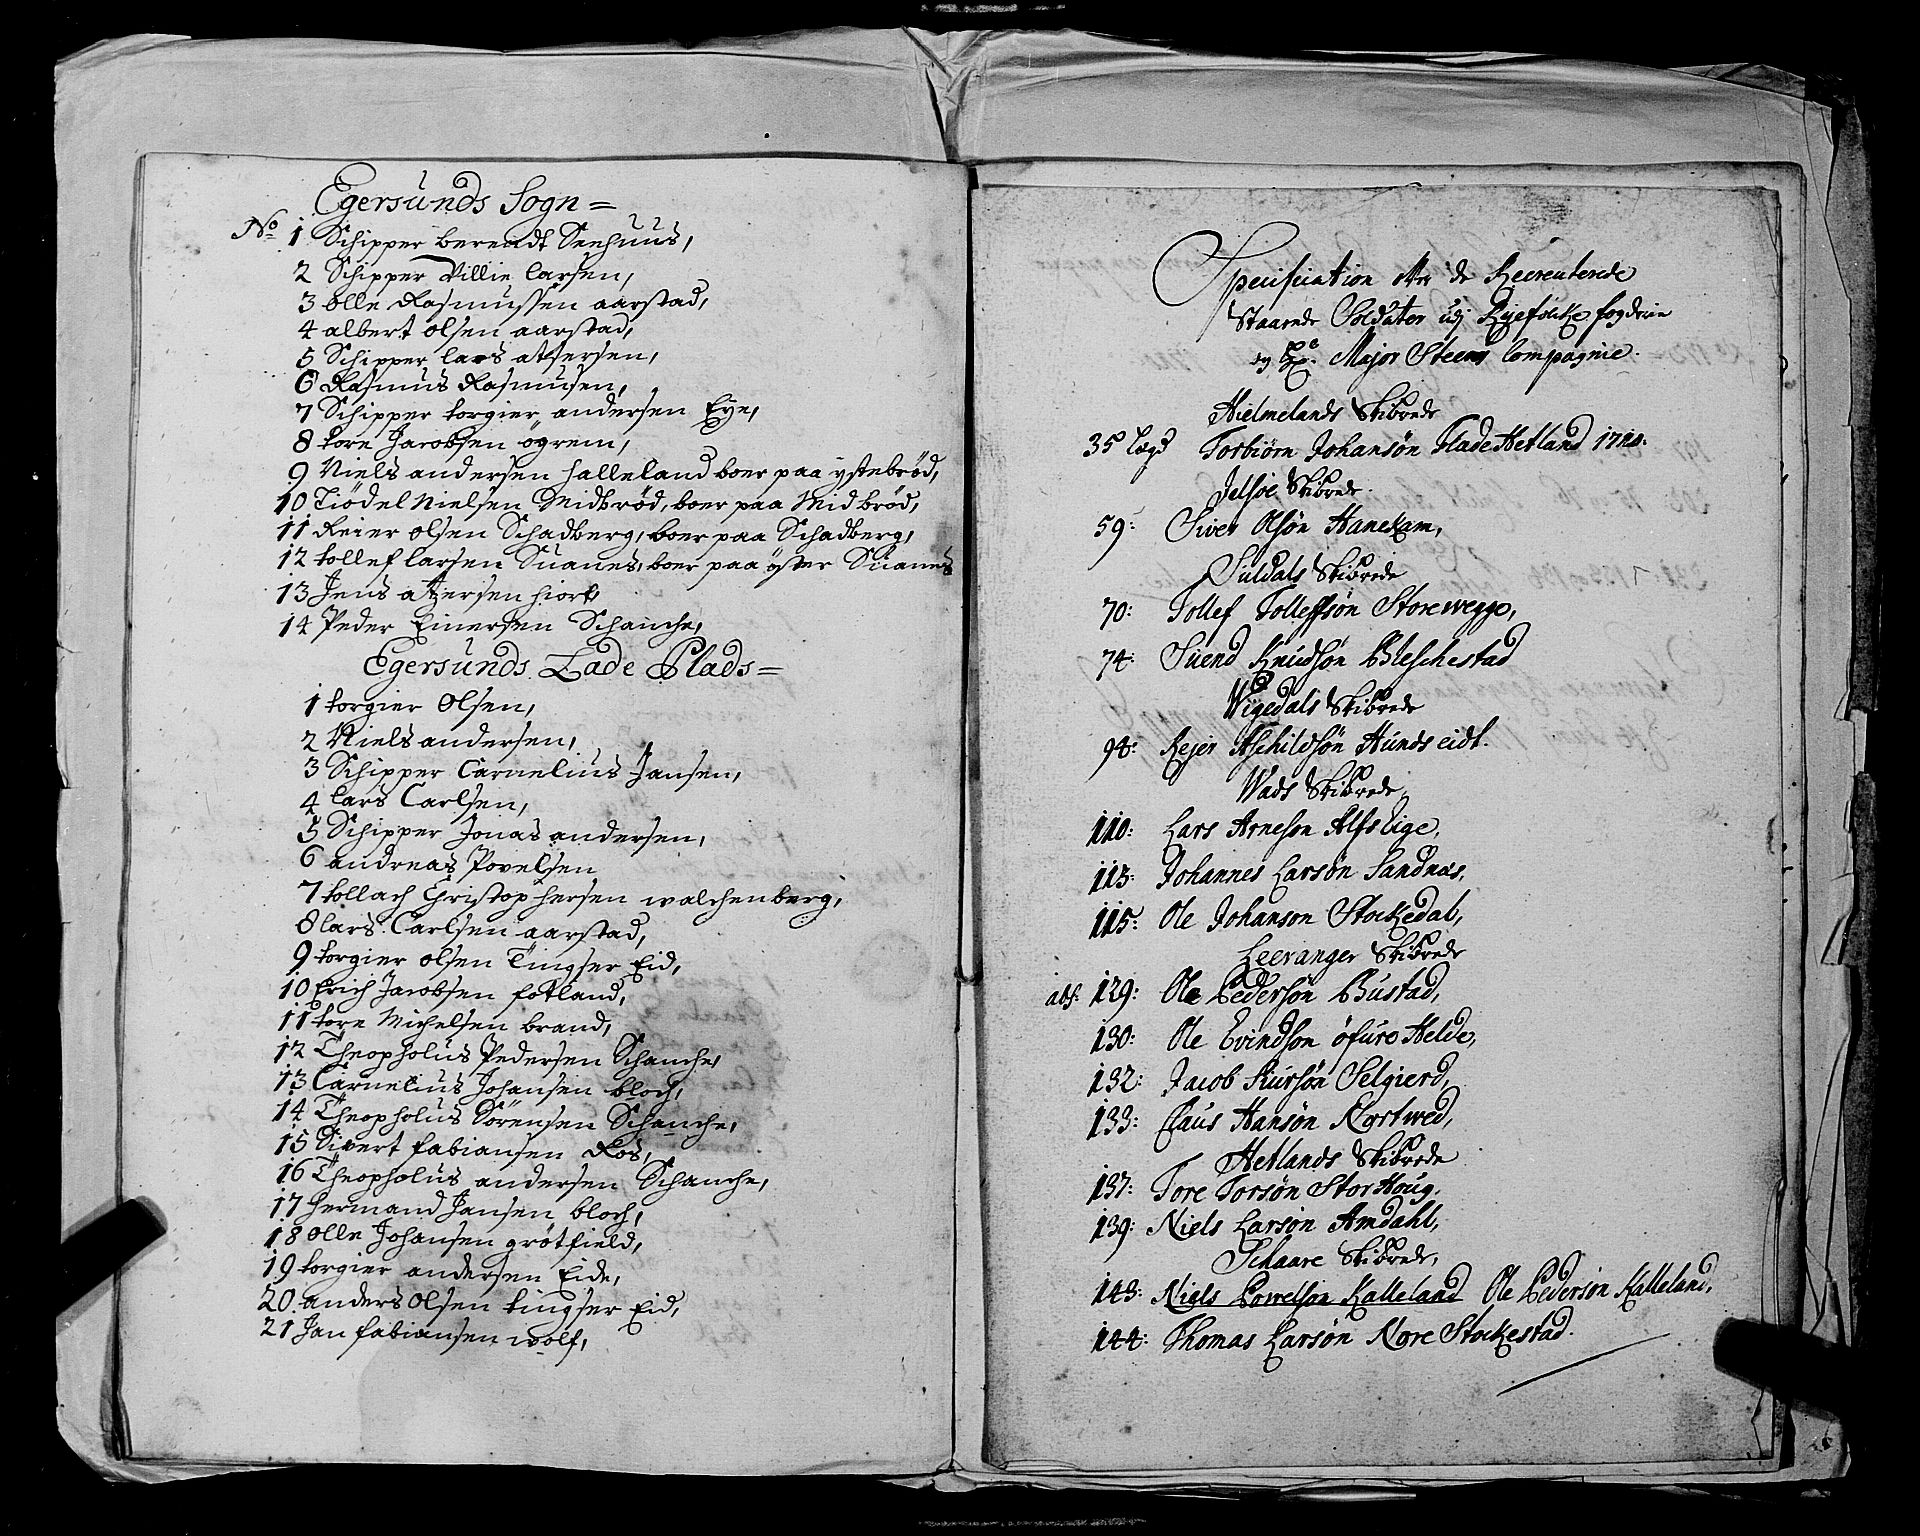 Egersunds Sogn =
No 1 Schipper berendt Seehuus,
2 Schipper Villie larsen,
3 olle Rasmussen aarstad,
4 albert olsen aarstad,
5 Schipper lars atzersen,
6 Rasmus Rasmusen,
7 Schipper torgier andersen Eye,
8 tore Jacobsen ögrem,
9 Niels andersen halleland boer paa ÿstebröd,
10 Tiödel Nielsen Midbröd, boer paa Midbröd,
11 Reier olsen Schadberg, boer paa Schadberg,
12 tollef larsen Suanes, boer paa ÿster Suanes
13 Jens atzersen hiort,
14 Peder Einersen Schanche,
Egersunds Lade Plads =
1 torgier Olsen,
2 Niels andersen,
3 Schipper Carnelius Jansen,
4 lars Carlsen,
5 Schipper Jonas andersen,
6 andreas Povelsen
7 tollach Christophersen walchenberg,
8 lars Carlsen aarstad,
9 torgier olsen Tingser Eid,
10 Erich Jacobsen fotland,
11 tore Michelsen brand,
12 Theopholus Pedersen Schanche,
13 Carnelius Johansen bloch,
14 Theopholus Sörensen Schanche,
15 Sivert fabiansen Ros,
16 Theopholus andersen Schanche,
17 hermand Jansen bloch,
18 olle Johansen grötfield,
19 torgier andersen Eide,
20 anders Olsen tingser Eid,
21 Jan fabiansen wolf,
Specification de Recreuterede
Staarende Soldater udj Ryefölcke fogderie
Major Steens Compagnie.
Hielmelands Skibrede
35 Lægd Torbiörn Johansön Flade Hetland
Jelsöe Skibrede.
59: Siver Olsön Hanekam,
Suldals Skibrede
70: Tollef Tolleffsön Storewegge,
74: Suend Knudsön Bleschestad
Wigedals Skibrede
94: Rejer Aschildsön Hundseidt.
Wads Skibrede
110: Lars Arneson Alfslige,
113: Johannes Larsön Sandnæs,
115: Ole Johanson Stockedal,
Leeranger Skibrede
abs: 129: Ole Pedersön Bustad,
130: Ole Evindson öfure Helde,
132: Jacob Siursön Selgierd,
133: Claus Hansön Nortwed,
Hetlands Skibrede
137: Tore Torsön Stor Houg.
139: Niels Larsön Amdahl,
Schaare Skibrede,
143: Niels Powelson Kalleland Ole Pederson Kalleland,
144: Thomas Larsön Nore Stockestad.